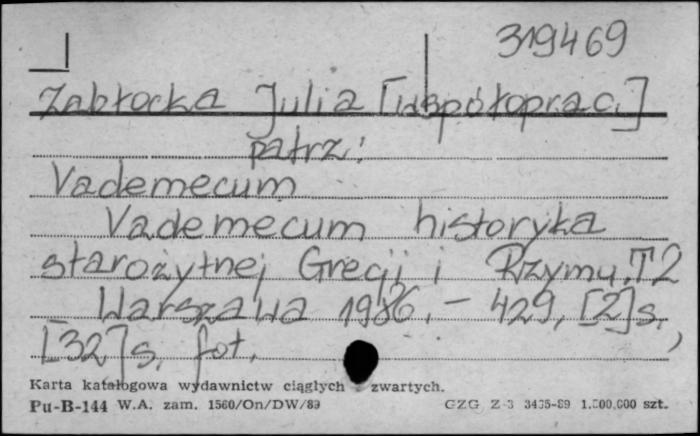 319469
Zabłocka Julia [współoprac.]
patrz:
Vademecum
Vademecum historyka
starożytnej Grecji i Rzymu. T2
Warszawa 1986. - 429, [2]s.,
[32]s. fot.
Karta katalogowa wydawnictw ciągłych - zwartych.
Pu-B-144 W.A. zam. 1560/On/DW/89 GZG Z-3 3435-89 1.500.000 szt.